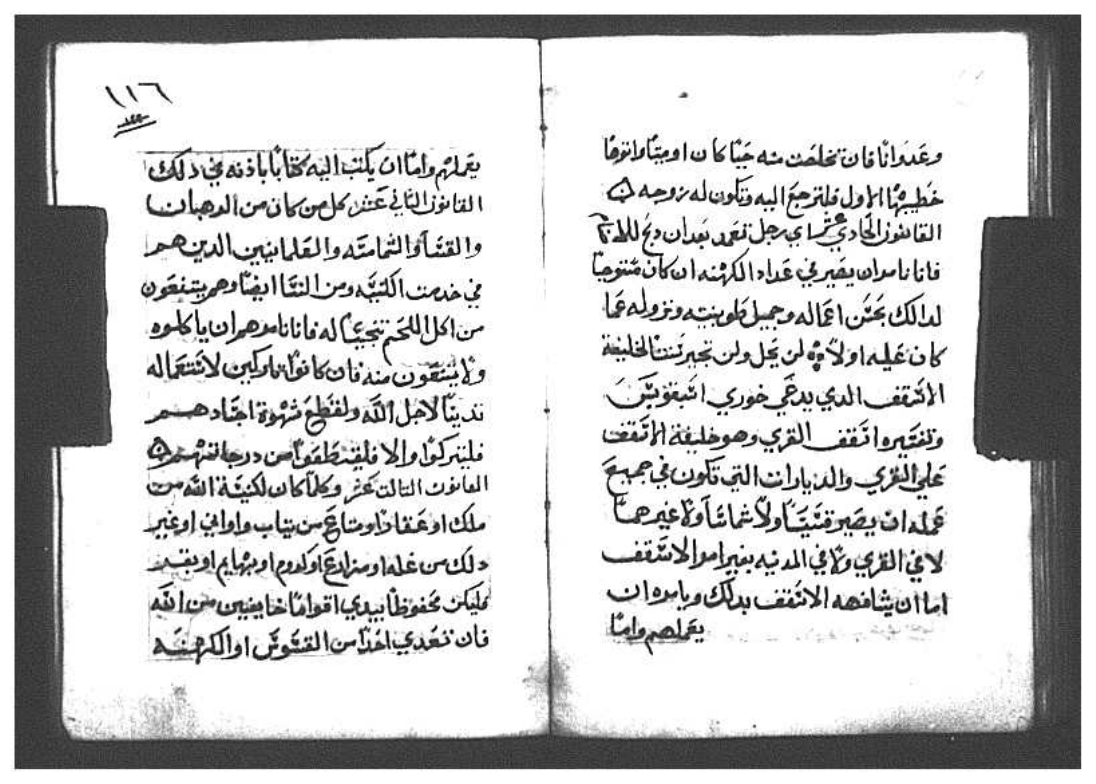 وعدوانا فان تخلصت منه حيا كان او ميتا واتوها
خطيبها الاول فلترجع اليه وتكون له زوجه
القانون الحادي عشر اي رجل تعمد بعدان دبح للاوثان
فاننا نامران يصير في عداد الكهنه ان كان مستوجبا
لدالك بحسن اعماله وجميل طويته ونزوله عما
كان عليه اولا لن يحل ولن نجير لنا لخليفة
الاسقف الدي يدعي خوري اسبقوبس
وتفسيره اسقف القري وهو خليفة الاسقف
علي القري والديارات التي تكون في جميع
عمله ان يصير قسيسا ولا شماسا ولا غيرهما
لا في القري ولا في المدنيه بغير امر الاسقف
اما ان يشافهه الاسقف بدلك ويامره ان
يعملهم واما
١١٦
يعملهم واما ان يكتب اليه كتابا باذنه في دلك
القانون التاني عشر كل من كان من الرهبان
والقسا والشمامسه والعلمانيين الدين هم
في خدمت الكنيسه ومن النسا ايضا وهم يمتنعون
من اكل اللحم تنجيسا له فاننا نامرهم ان ياكلوه
ولا يمتنعون منه فان كانوا تاركين لاستعماله
تدينا لاجل الله ولقطع شهوة اجسادهم
فليتركوا والا فليقطعوا من درجاتهم
القانون التالت عشر وكلما كان لكنيسة الله من
ملك او عقار او متاع من تياب واواني او غير
دلك من غله او مزارع او كروم او بهايم او بقر
فليكن محفوظا بيدي اقواما خايفين من الله
فان تعدي احدا من القسوس او الكهنه